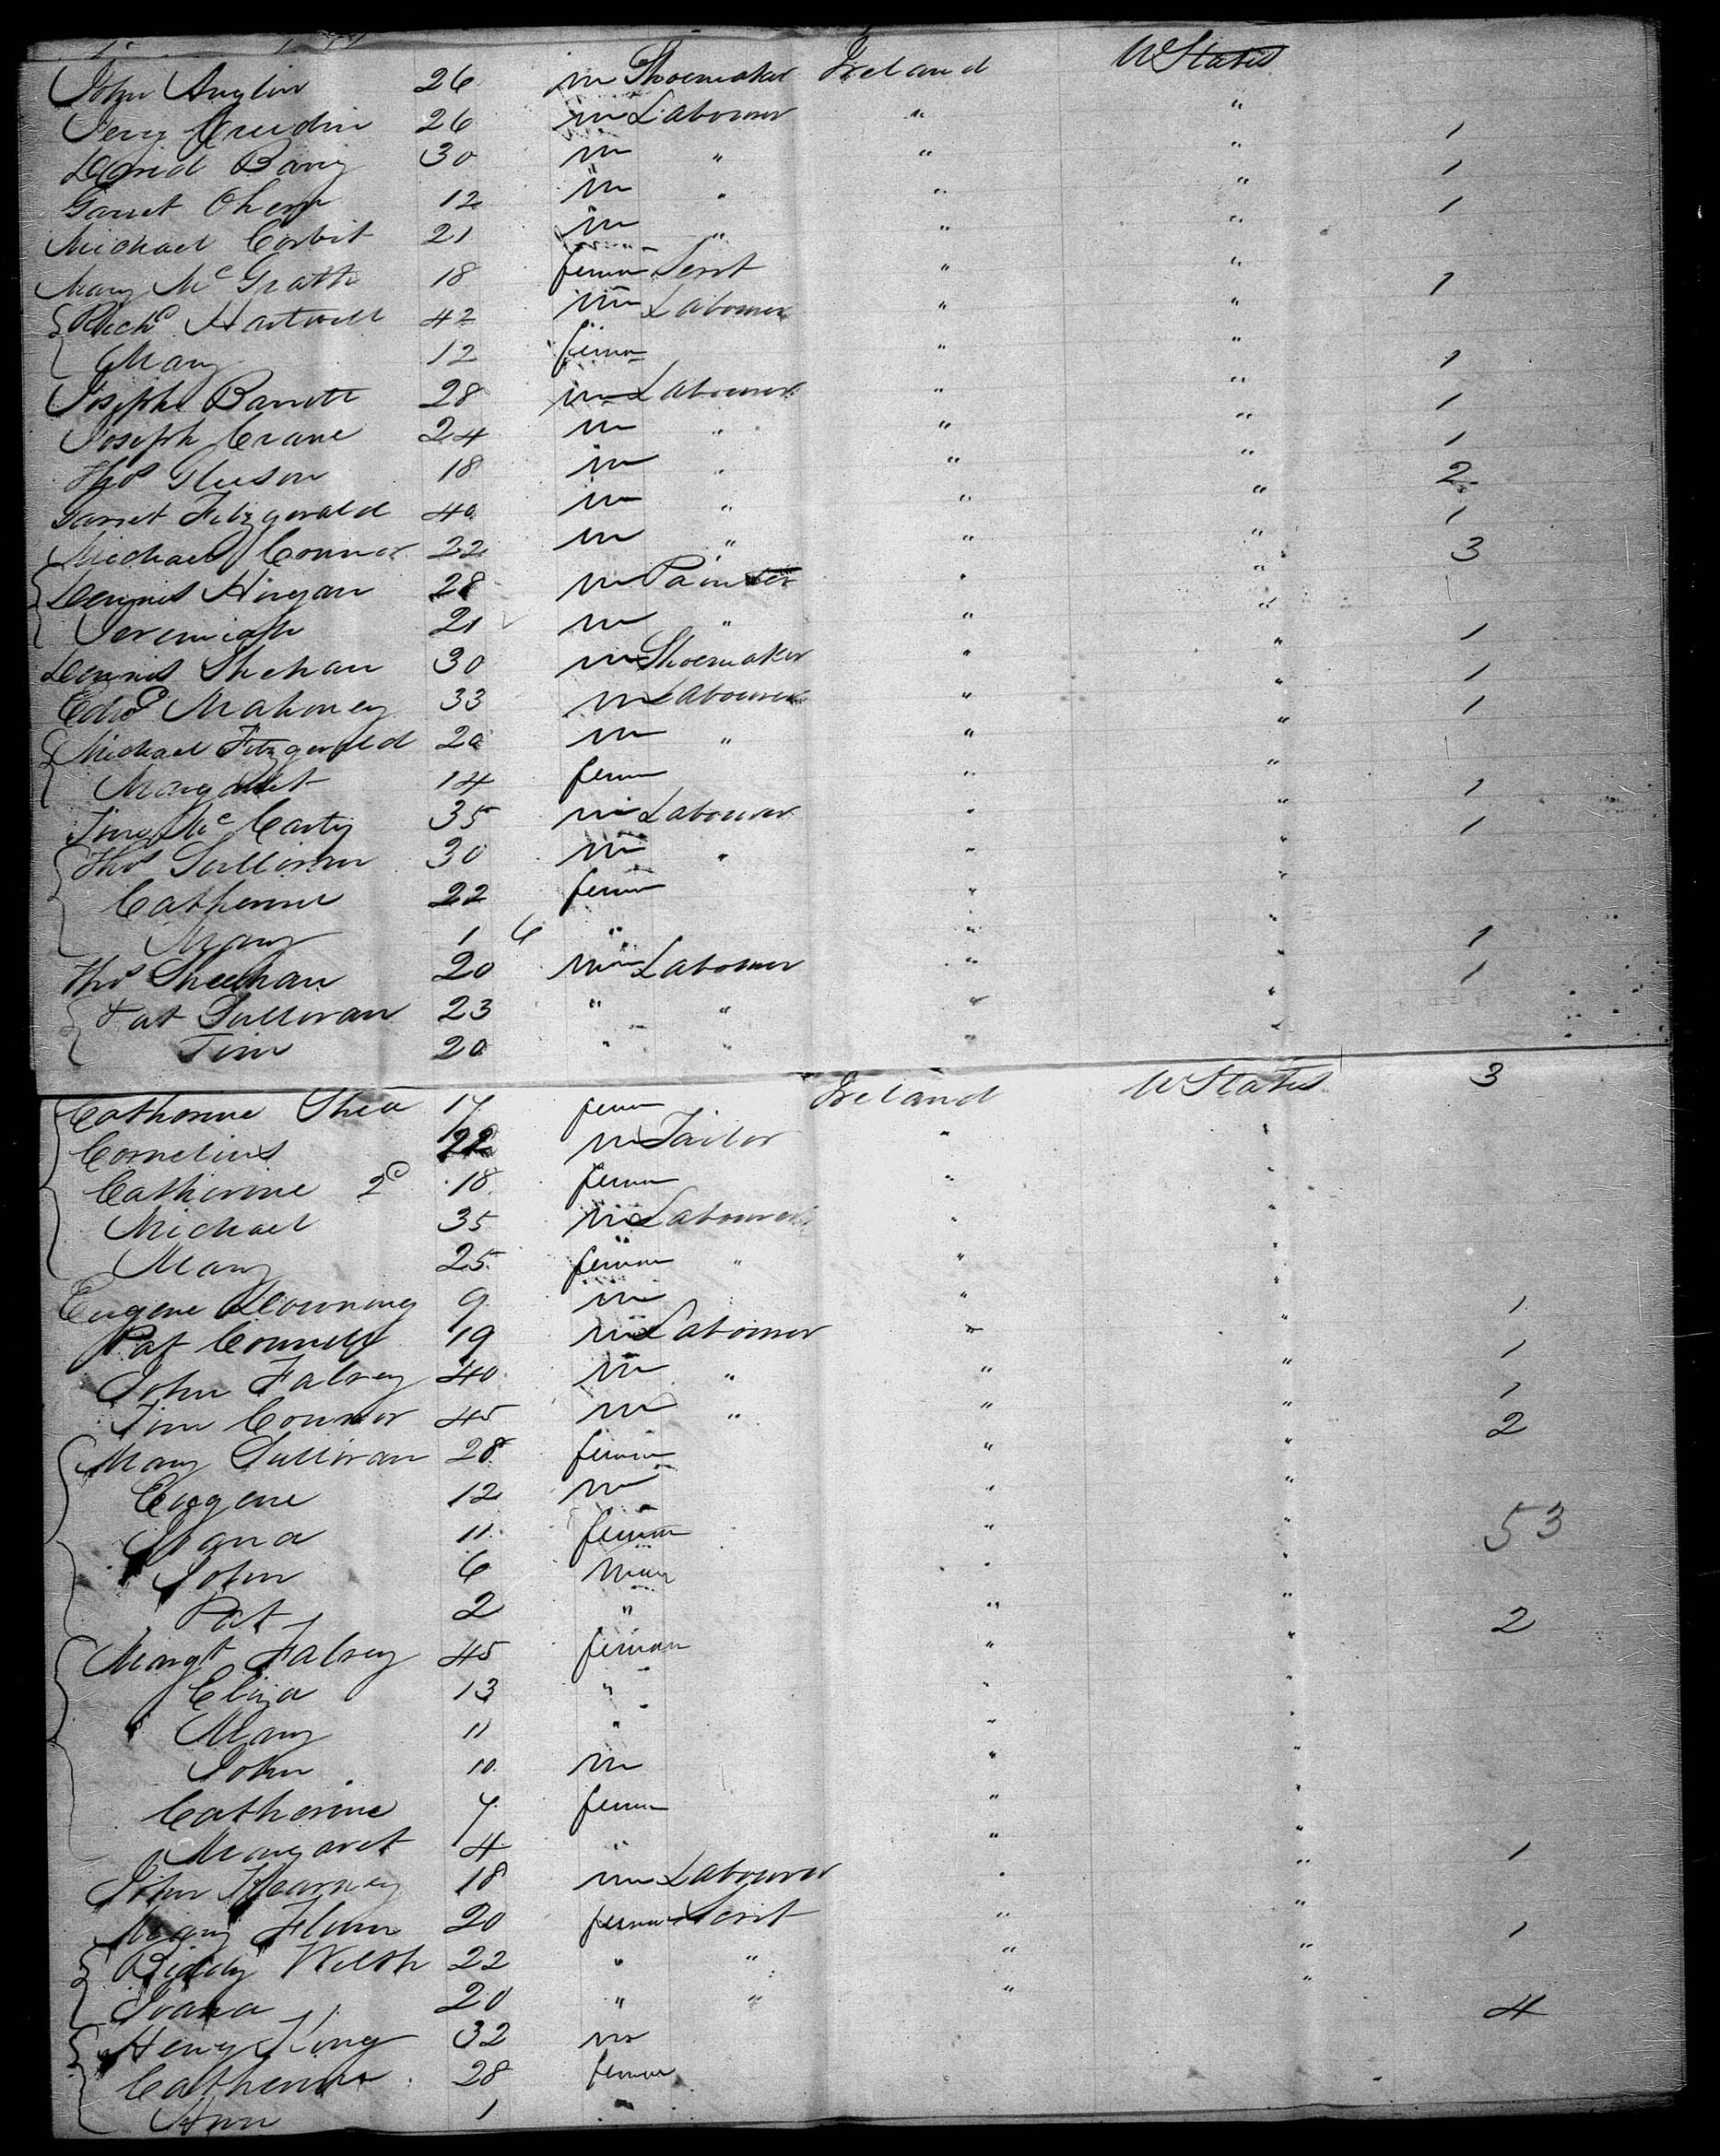 John Anglin 26 m Shoemaker Ireland U States
Jerry Creedin 26 m Labourer " " 1
David Barry 30 m " " " 1
Garret Ahern 12 m " " " 1
Michael Corbit 21 m " " "
Mary McGrath 18 femm Servt " " 1
Richd Hartwell 42 m Labourer " "
Mary 12 femm " " 1
Joseph Barrett 28 m Labourer " " 1
Joseph Crane 24 m " " " 1
Thos Gleeson 18 m " " " 2
Garret Fitzgerald 40 m " " " 1
Michael Connor 22 m " " " 3
Dennis Hingan 28 m Painter " "
Jeremiah 21 m " " " 1
Dennis Shehan 30 m Shoemaker " " 1
Edwd Mahoney 33 m Labourer " " 1
Michael Fitzgerald 20 m " " "
Margaret 14 femm " " 1
Timy McCarty 35 m Labourer " " 1
Thos Sullivan 30 m " " "
Catherine 22 femm " "
Mary 1 6 " " " 1
Thos Sheehan 20 m Labourer " " 1
Pat Sullivan 23 " " " "
Tim 20 " " " "
Catherine Shea 17 femm Ireland U States 3
Cornelius 22 m Tailor " "
Catherine 2d 18 femm " "
Michael 35 m Labourer " "
Mary 25 femm " " "
Eugene Downing 9 m " " 1
Pat Connell 19 m Labourer " " 1
John Falvey 40 m " " " 1
Tim Connor 45 m " " " 2
Mary Sullivan 28 femm " "
Eugene 12 m " "
Joana 11 femm " " 53
John 6 m " "
Pat 2 " " " 2
Margt Falvey 45 femm " "
Eliza 13 " " "
Mary 11 " " "
John 10 m " "
Catherine 7 femm " "
Margaret 4 " " " 1
John Kearney 18 m Labourer " "
Mary Flinn 20 femm Servt " " 1
Biddy Welsh 22 " " " "
Joana 20 " " " " 4
Henry King 32 m
Catherine 28 femm
Ann 1 "